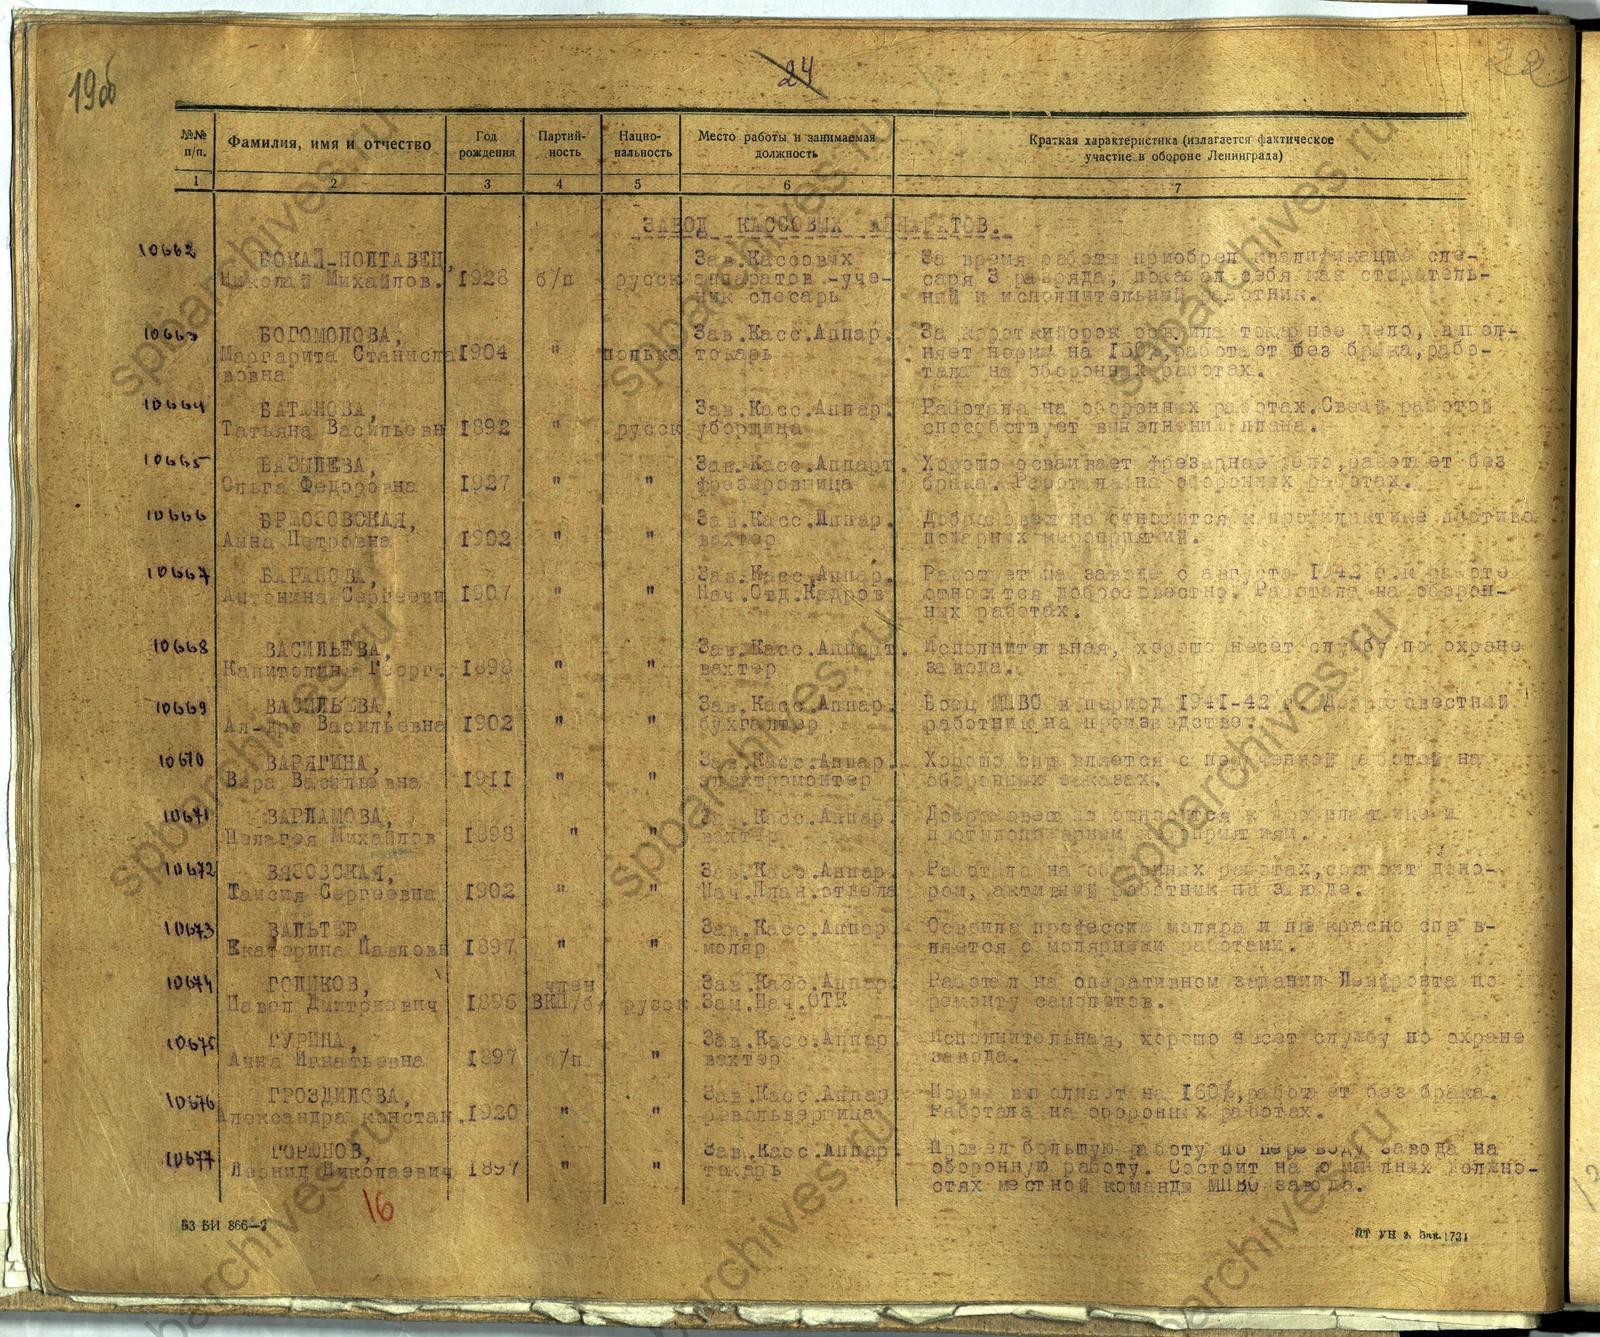 19об
24
22
№№ п/п.
Фамилия, имя и отчество
Год рождения
Партий-ность
Нацио-нальность
Место работы и занимаемая должность
Краткая характеристика (излагается фактическое участие в обороне Ленинграда)
1 2 3 4 5 6 7
ЗАВОД КАССОВЫХ АППАРАТОВ.
10662 БОКАЛ-ПОЛТАВЕЦ, Зав.Кассовых За время работы приобрел квалификацию сле-
Николай Михайлов. 1928 б/п русск аппаратов -уче- саря 3 разряда, показал себя как старатель-
ник слесарь ный и исполнительный работник.
10663 БОГОМОЛОВА, Зав.Касс.Аппар. За короткийсрок освоила токарное дело, выпол-
Маргарита Станисла 1904 " полька токарь няет нормы на 150%,работает без брака,рабо-
вовна тала на оборонных работах.
10664 БАТАНОВА, Зав.Касс.Аппар. Работала на оборонных работах.Своей работой
Татьяна Васильевн 1892 " русск уборщица способствует выполнению плана.
10665 БАЗЫЛЕВА, Зав.Касс.Аппарт. Хорошо осваивает фрезерное дело,работает без
Ольга Федоровна 1927 " " фрезеровщица брака. Работала на оборонных работах.
10666 БРЖОЗОВСКАЯ, Зав.Касс.Аппар. Добросовестно относится к профилактике противо
Анна Петровна 1902 " " вахтер пожарных мероприятий.
10667 Зав.Касс.Аппар. Работает на заводе с августа 1942 г.к работе
Антонина Сергеевн 1907 " " Нач.Отд.Кадров относится добросовестно. Работала на оборон-
ных работах.
10668 ВАСИЛЬЕВА, Зав.Касс.Аппарт. Исполнительная, хорошо несет службу по охране
Капитолина Георг. 1898 " " вахтер завода.
10669 ВАСИЛЬЕВА, Зав.Касс.Аппар. Боец МПВО в период 1941-42 г. Добросовестный
Ал-дра Васильевна 1902 " " бухгалтер работник на производстве.
10670 ВАРЯГИНА, Зав.Касс.Аппар. Хорошо справляется с порученной работой на
Вера Васильевна 1911 " " электромонтер оборонных заказах.
10671 ВАРЛАМОВА, Зав.Касс.Аппар. Добросовестно относится к профилактике и
Пелагея Михайлов 1898 " " вахтер противопожарным мероприятиям.
10672 ВЯЗОВСКАЯ, Зав.Касс.Аппар. Работала на оборонных работах,состоит доно-
Таисия Сергеевна 1902 " " Нач.План.отдела ром, активный работник на заводе.
10673 ВАЛЬТЕР, Зав.Касс.Аппар. Освоила профессию моляра и прекрасно справ-
Екатерина Павловн 1897 " " моляр няется с молярными работами.
10674 ГОЛИКОВ, член Зав.Касс.Аппар. Работал на оперативном задании Ленфронта по
Павел Дмитриевич 1896 ВКП/б/ русск Зам.Нач.ОТК ремонту самолетов.
10675 ГУРИНА, Зав.Касс.Аппар. Исполнительная, хорошо несет службу по охране
Анна Игнатьевна 1897 б/п " вахтер завода.
10676 ГРОЗДИЛОВА, Зав.Касс.Аппар. Нормы выполняет на 160%,работает без брака.
Александра констан. 1920 " " револьверщица Работала на оборонных работах.
10677 ГОРЮНОВ, Зав.Касс.Аппар. Провел большую работу по переводу завода на
Леонид Николаевич 1897 " " токарь оборонную работу. Состоит на командных должно-
стях местной команды МПВО завода.
16
БЗ БИ 866—2
ЛТ УН з. Зак.1731
spbarchives.ru